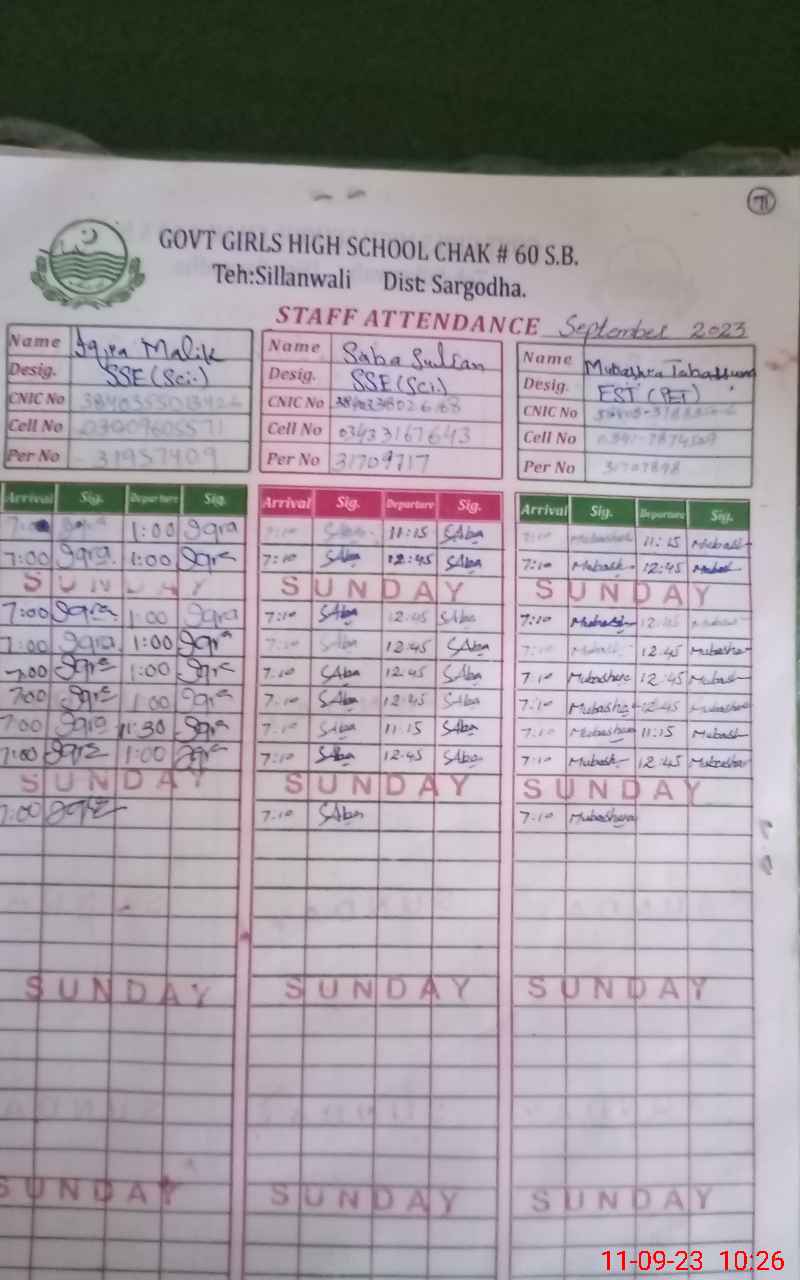 71
GOVT GIRLS HIGH SCHOOL CHAK # 60 S.B.
Teh:Sillanwali Dist: Sargodha.
STAFF ATTENDANCE September 2023
Name Iqra Malik Name Saba Sultan Name Mubashra Tabassum
Desig. SSE (Sci.) Desig. SSE (Sci) Desig. EST (PET)
CNIC No CNIC No CNIC No
Cell No Cell No Cell No
Per No Per No 31709717 Per No
Arrival Sig. Departure Sig. Arrival Sig. Departure Sig. Arrival Sig. Departure Sig.
1:00 Iqra 7:10 Saba 11:15 SAba 7:10 Mubashera 11:15 Mubash
7:00 Iqra 1:00 Iqra 7:10 SAba 12:45 SAba 7:10 Mubash 12:45 Mubash
SUNDAY SUNDAY SUNDAY
7:00 Iqra 1:00 Iqra 7:10 SAba 12:45 SAba 7:10 Mubash 12:45
7:00 Iqra 1:00 Iqra 7:10 SAba 12:45 SAba 7:10 12:45 Mubashe
7:00 Iqra 1:00 Iqra 7:10 SAba 12:45 SAba 7:10 Mubashera 12:45 Mubash
7:00 Iqra 1:00 Iqra 7:10 SAba 12:45 SAba 7:10 Mubashe 12:45 Mubashera
7:00 Iqra 11:30 Iqra 7:10 SAba 11:15 SAba 7:10 Mubashera 11:15 Mubash
7:00 Iqra 1:00 Iqra 7:10 SAba 12:45 SAba 7:10 Mubash 12:45 Mubashera
SUNDAY SUNDAY SUNDAY
7:00 Iqra 7:10 SAba 7:10 Mubashera
SUNDAY SUNDAY SUNDAY
SUNDAY SUNDAY SUNDAY
11-09-23 10:26